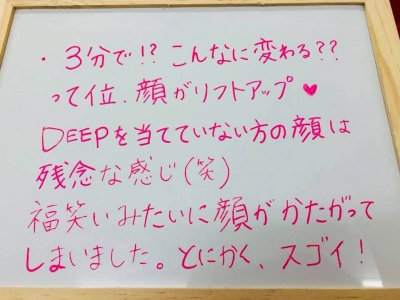 ・3分で!? こんなに変わる??
って位、顔がリフトアップ♥
DEEPを当てていない方の顔は
残念な感じ(笑)
福笑いみたいに顔がかたがって
しまいました。とにかく、スゴイ!